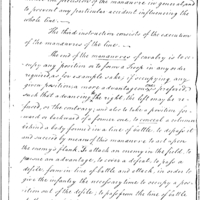 and provision of the manœuvre in general and
to prevent any particular accident influencing the
whole line.
The third instruction consists of the execution
of the manœuvres of the line.
The end of the manœuvres of cavalry is to oc-
cupy any position to form a Troop in any order
required, as for example either of occupying any
given position a more advantageous preferred,
such that a the right, the left may be re-
fused, or the contrary, and also to take a position for-
ward or backward of a former one, to conceal a column
behind a body formed in a line of battle, to dispose it
and succeed by means of this manœuvre to act upon
the enemy's flank. To attack an enemy in the field, to
pursue an advantage, to cover a defeat, to pass a
defile, form in line of battle and attack, in order to
give the infantry the necessary time to occupy a po-
sition out of the defile, to pass from the line of battle